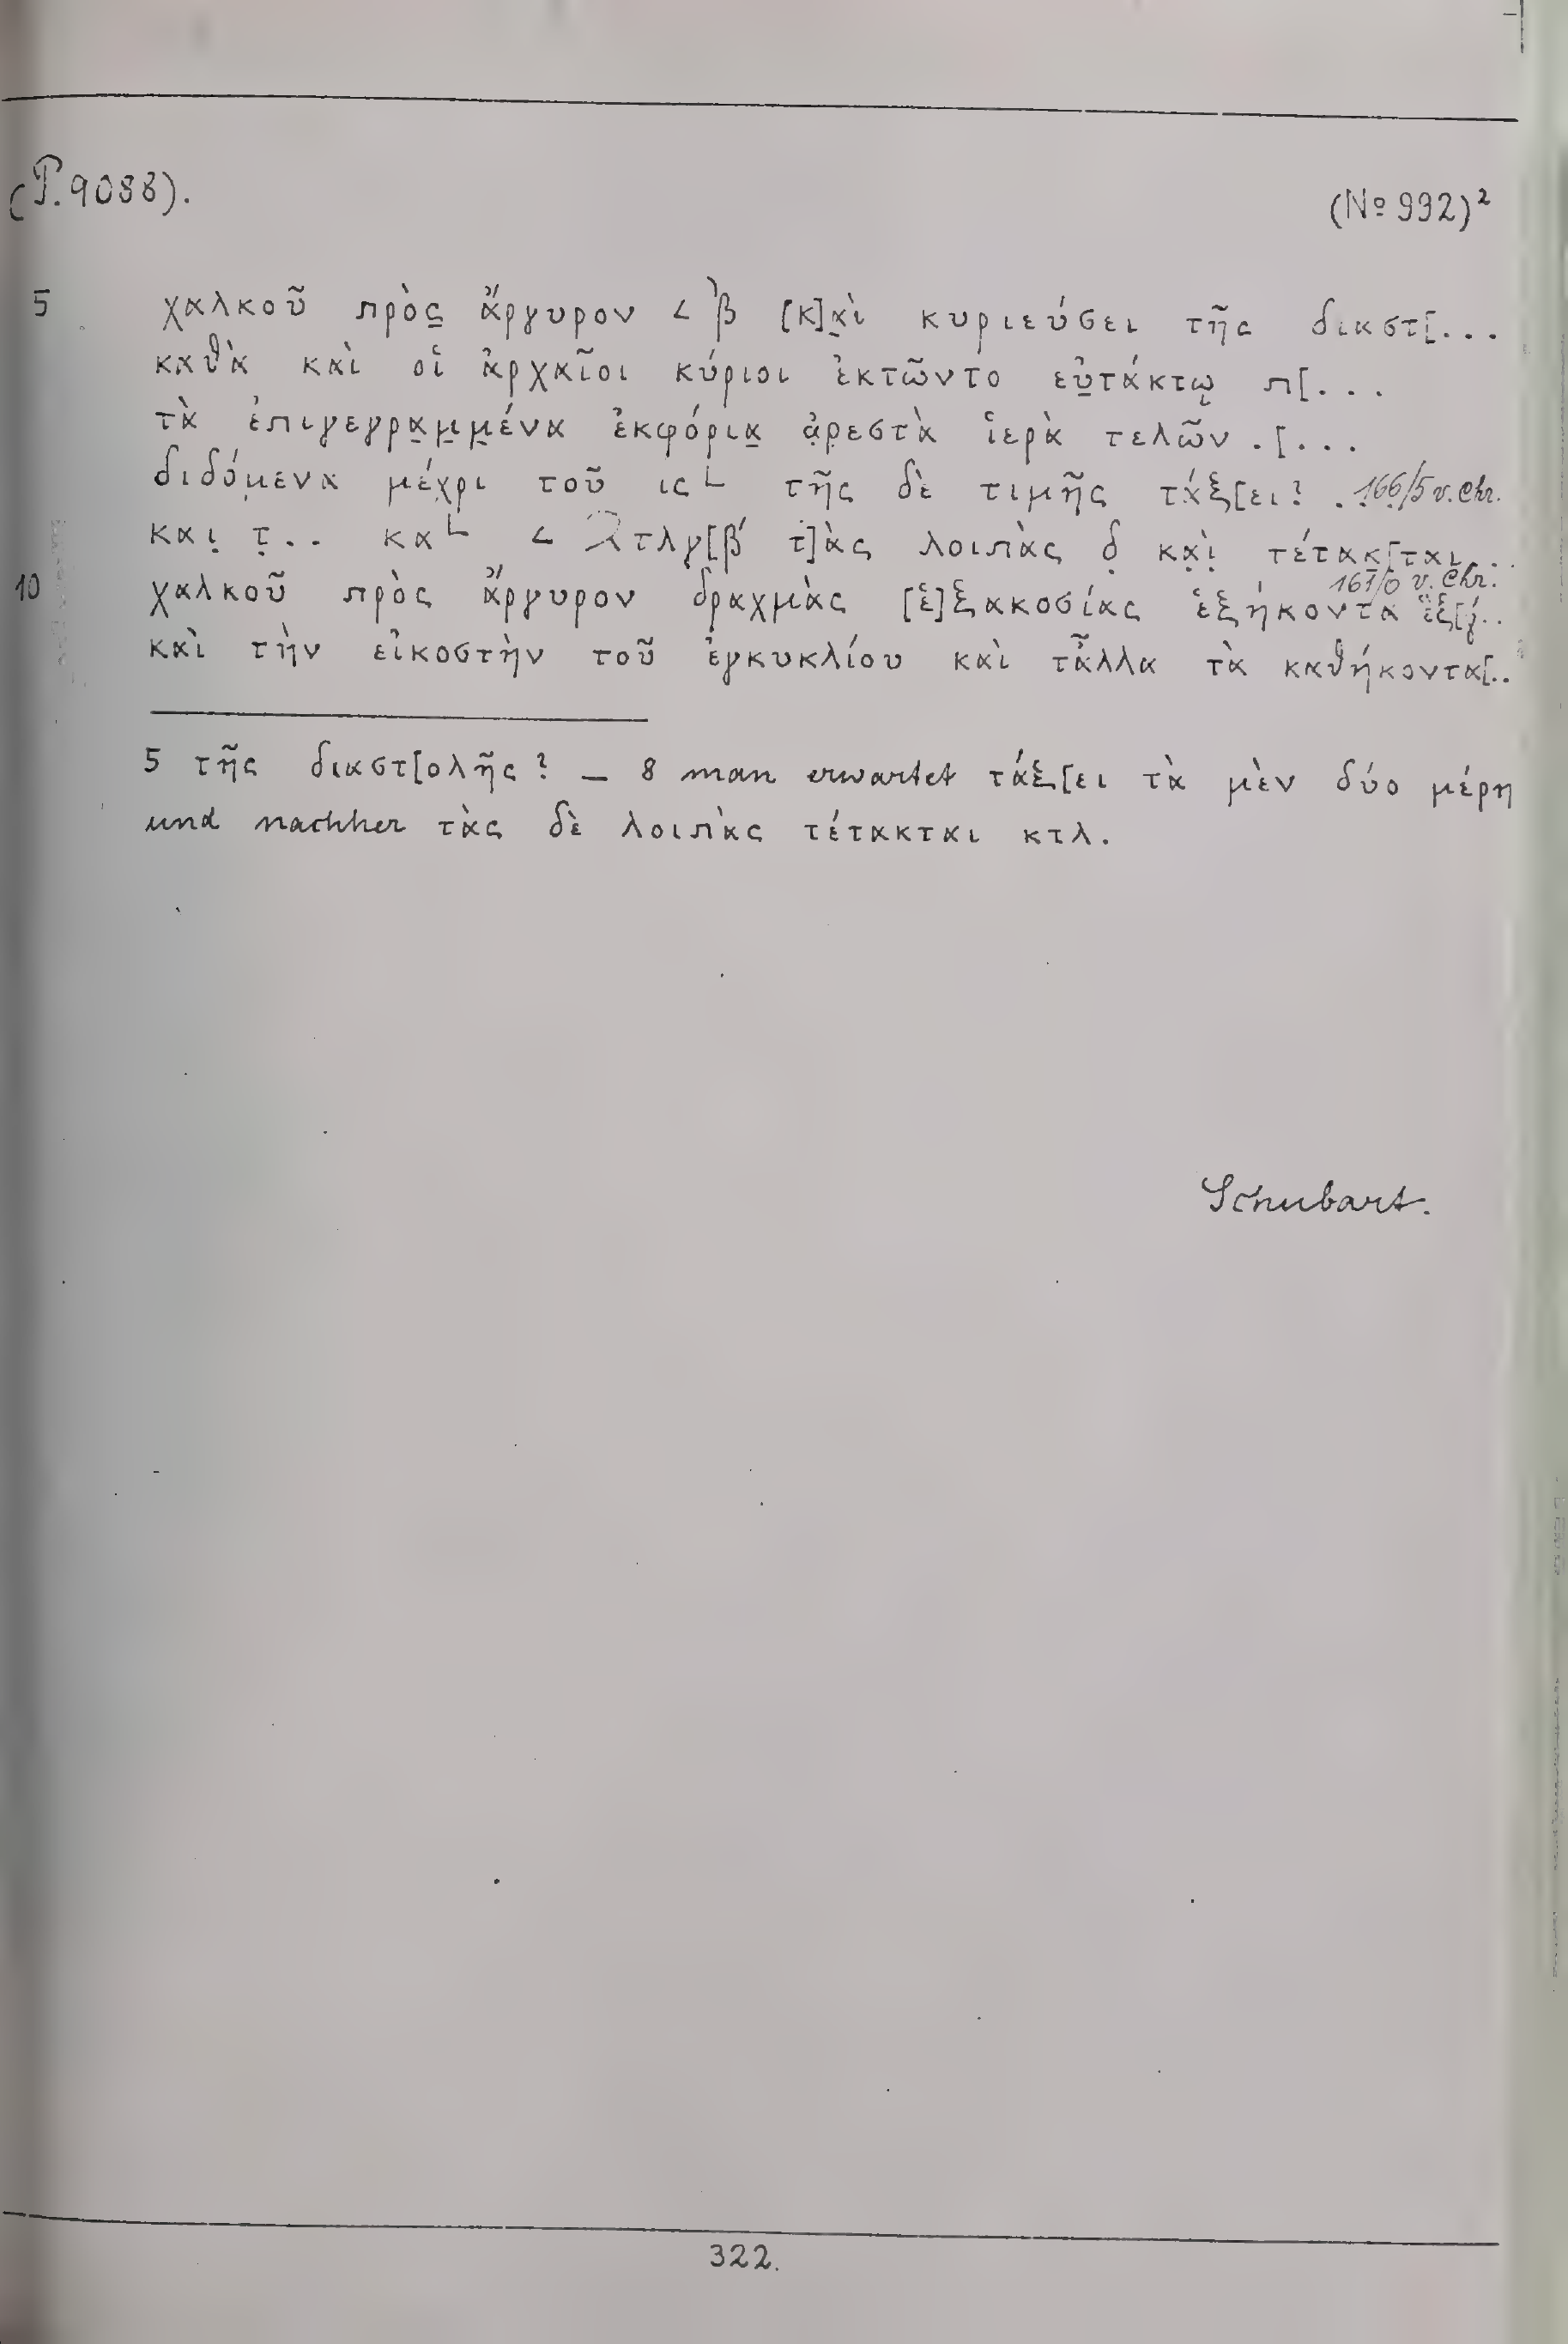 (P. 9088). (No 992)²
5 χαλκοῦ πρὸς̲ ἄργυρον < ͵β [κ]α̣ὶ κυριεύσει τῆς διαστ[...
καθὰ καὶ οἱ ἀρχαῖοι κύριοι ἐκτῶντο εὐ̣τάκτῳ π[...
τὰ ἐπιγεγρα̣μ̣μ̣ένα ἐκφόρια̣ ἀ̣ρ̣εστὰ ἱερὰ τελῶν .[...
διδόμ̣ενα μέχ̣ρι τοῦ ις └ τῆς δὲ τιμῆς τάξ[ει? .... 166/5 v. Chr.
και̣ τ̣.. κα └ < ͵Ατλγ[β´ τ]ὰς λοιπὰς δ̣ κα̣ὶ̣ τέτακ[ται...
161/0 v. Chr.
10 χαλκοῦ πρὸς ἄργυρον δραχμὰς [ἑ]ξακοσίας ἑξήκοντα ἓξ[γ´..
καὶ τὴν εἰκοστὴν τοῦ ἐγκυκλίου καὶ τἆλλα τὰ καθήκοντα[..
5 τῆς διαστ[ολῆς? — 8 man erwartet τάξ[ει τὰ μὲν δύο μέρη
und nachher τὰς δὲ λοιπὰς τέτακται κτλ.
Schubart.
322.